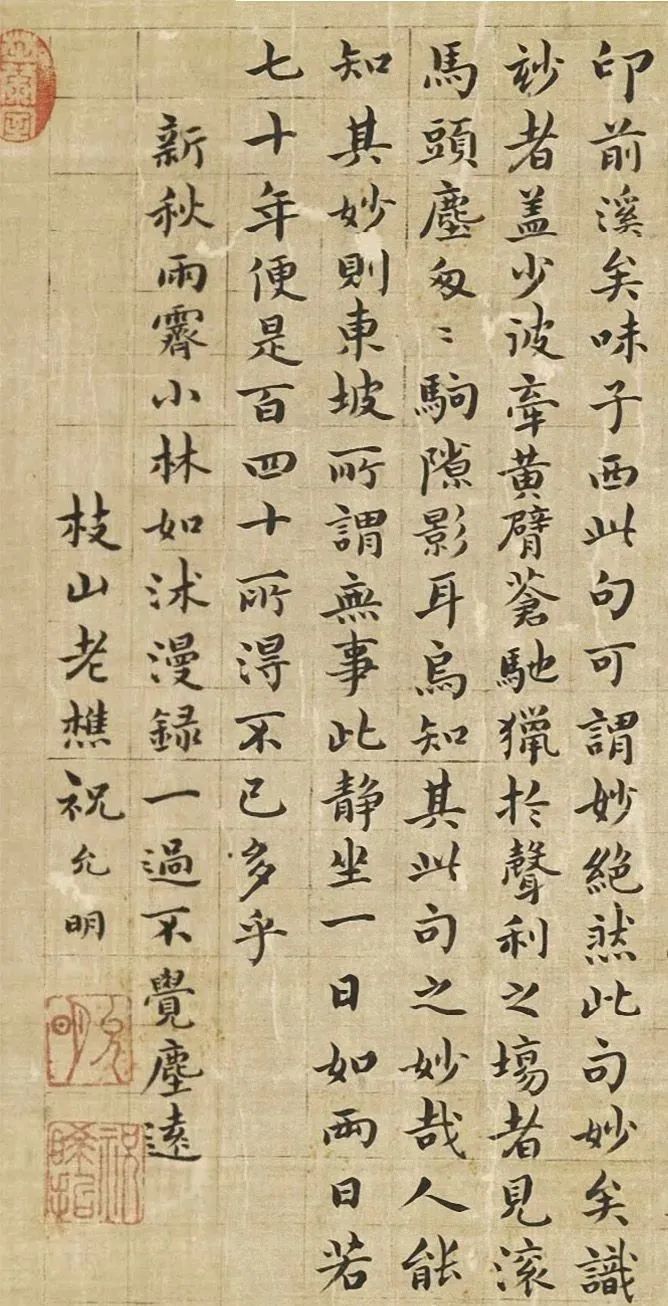 印前溪矣味子西此句可謂妙絕然此句妙矣識
玅者盖少彼牽黃臂蒼馳獵於聲利之場者見滾
馬頭塵匆〻駒隙影耳烏知其此句之妙哉人能
知其妙則東坡所謂無事此静坐一日如兩日若
七十年便是百四十所得不已多乎
新秋雨霽小林如沭漫録一過不覺塵遠
枝山老樵祝允明
允明